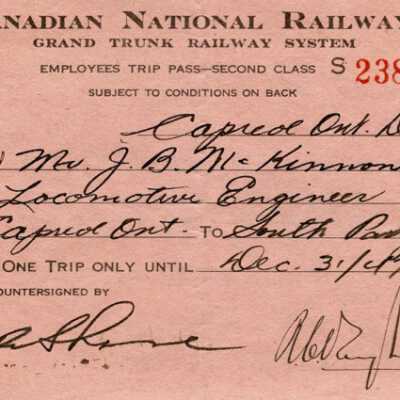 ANADIAN NATIONAL RAILWAY
GRAND TRUNK RAILWAY SYSTEM
EMPLOYEES TRIP PASS—SECOND CLASS S 238
SUBJECT TO CONDITIONS ON BACK
Capreol Ont. D
Mr. J. B. McKinnon
Locomotive Engineer
Capreol Ont. TO South
ONE TRIP ONLY UNTIL Dec. 31/
OUNTERSIGNED BY